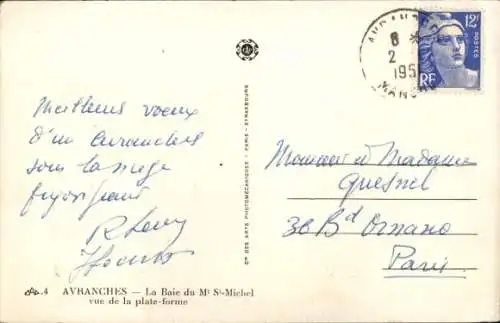 12F
POSTES
RF
AVRANCHES
8 *
2
195
MANCHE
Meilleurs voeux
d'un Avranches
sous la neige
Monsieur et Madame
Quesnel
36 Bd Ornano
Paris
Cie DES ARTS PHOTOMÉCANIQUES - PARIS - STRASBOURG
4 AVRANCHES - La Baie du Mt St-Michel
vue de la plate-forme